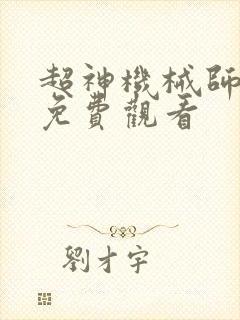 超神機械師
免費觀看
劉才宇